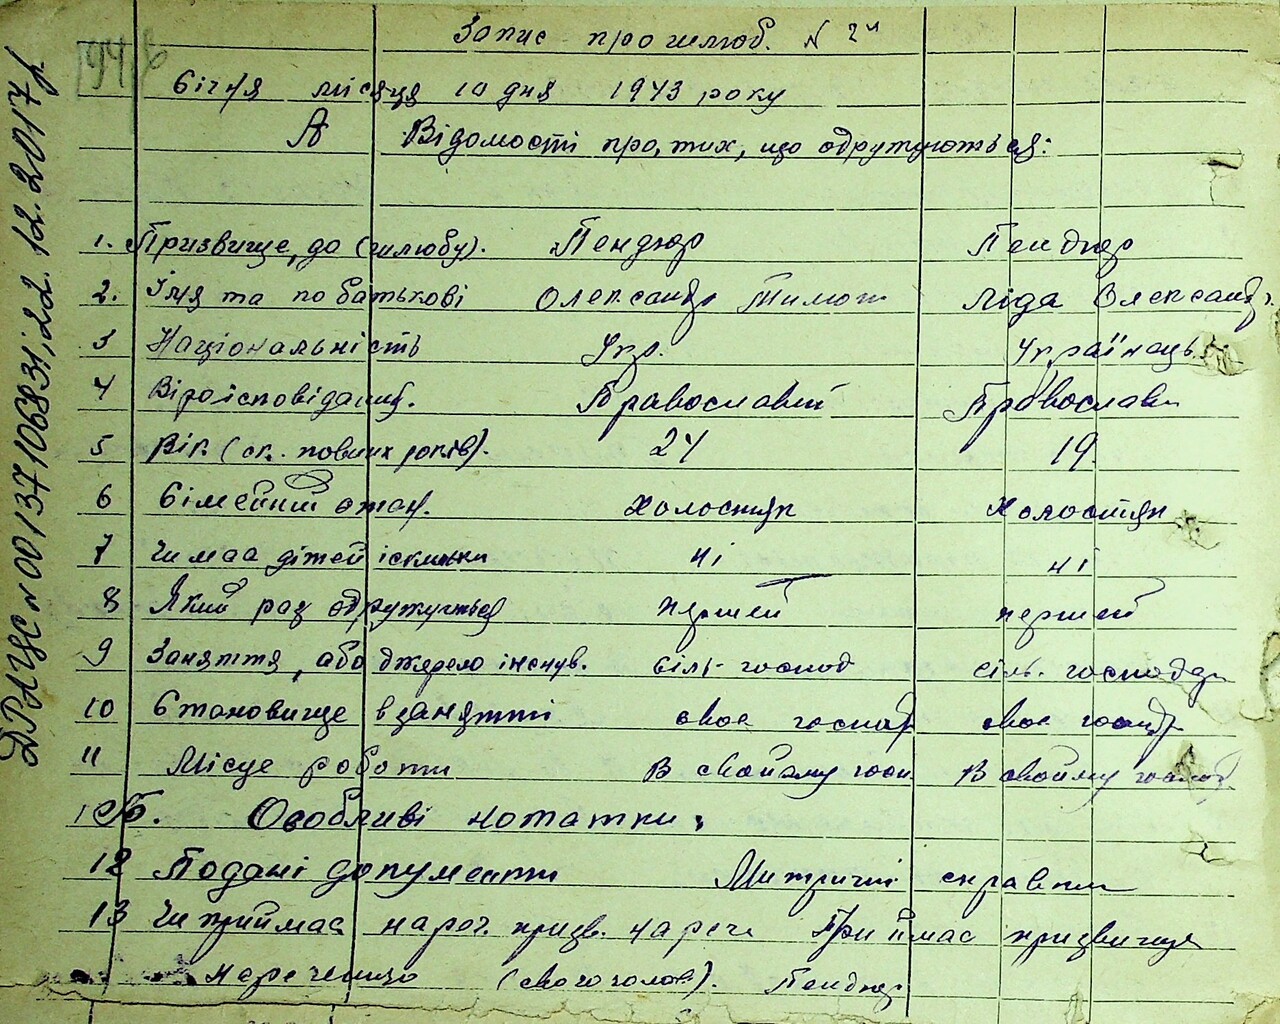 Запис про шлюб. N 2
Січня місяця 10 дня 1943 року
А Відомості про, тих, що одружуються:
1. Призвище, до (шлюбу). Пендюр Пендюр
2. Імя та по батькові Олександр Тимот Ліда Олександ.
3 Національність Укр. Українець
4 Віроісповідання. Православний Православн
5 Вік (ск. повних років). 24 19
6 Сімейний стан. холостяк холостяк
7 Чи має дітей і скільки ні ні
8 Який раз одружується перший перший
9 Заняття, або джерело існув. сіль-господ сіль. господар
10 Становище в занятті своє господ своє господ
11 Місце роботи В свойому госп. В свойму господ
Б. Особливі нотатки:
12 Подані документи Митричні справки
13 Чи приймає нароч. призв. нарече Приймає призвище
нареченцо (свого голов). Пендюр
ДРАЦС N 00137106831, 22.12.2017 р.
94